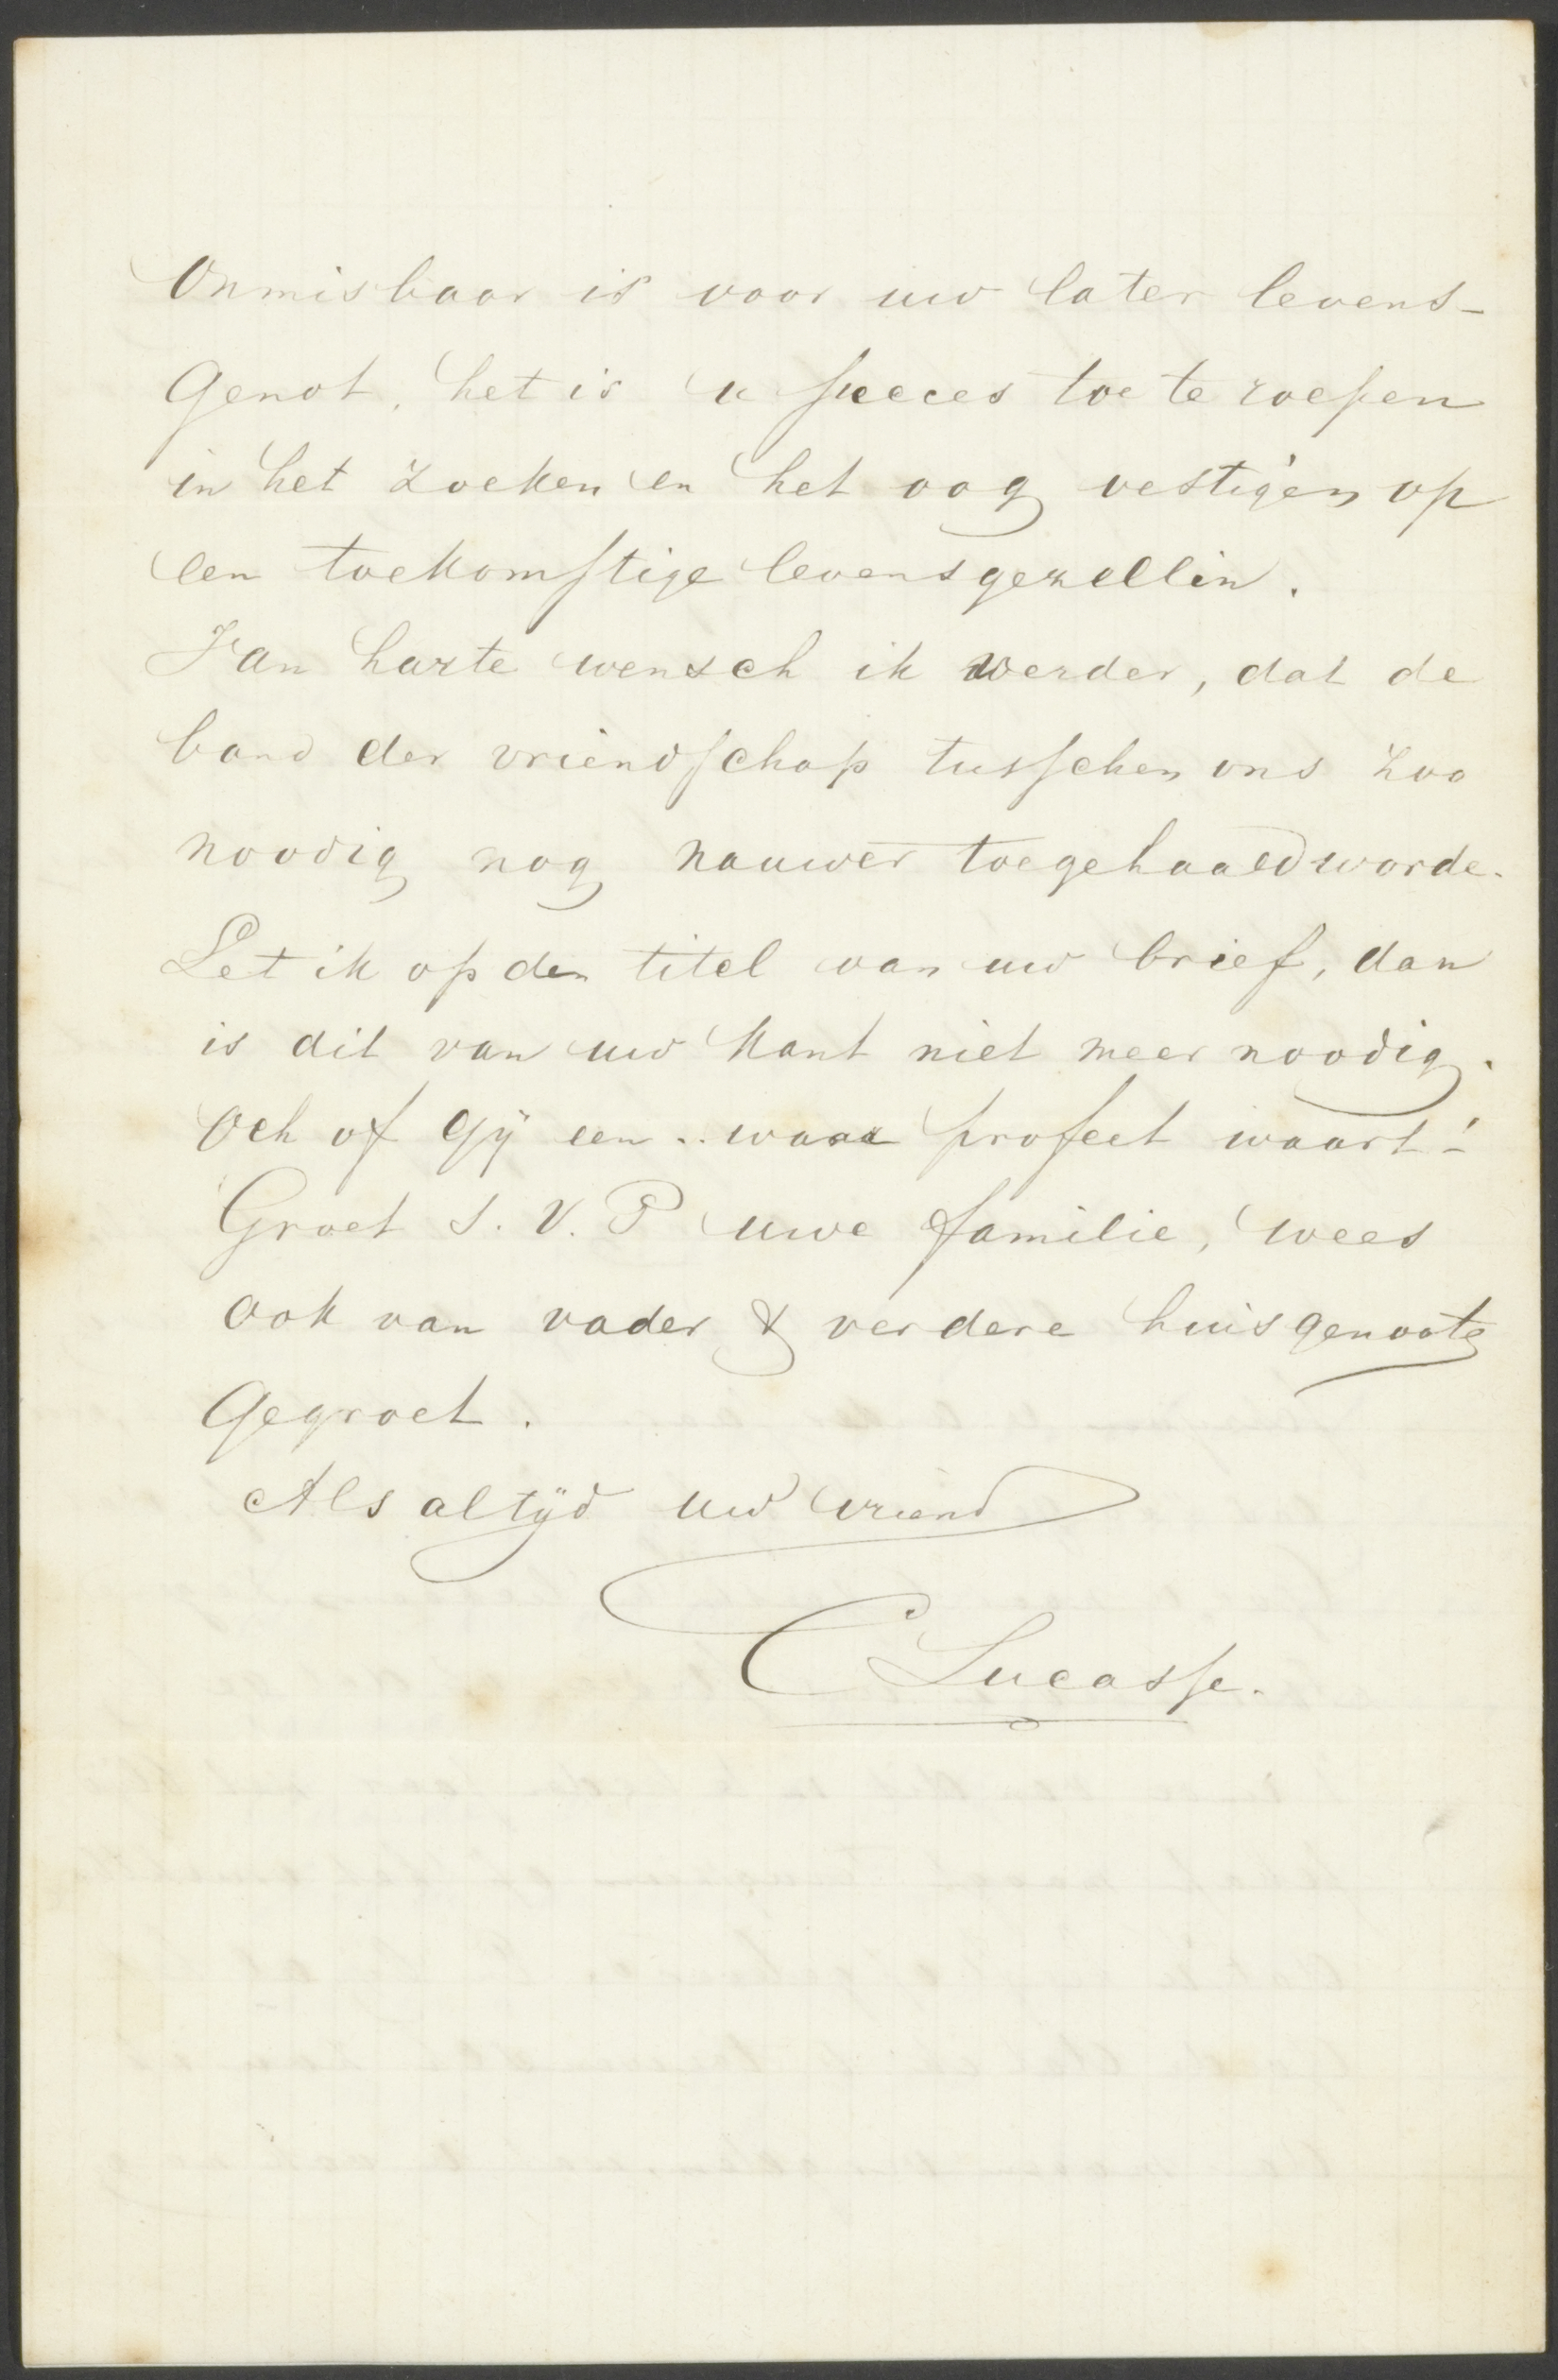 Onmisbaar is voor uw later levens-
Genot, het is u succes toe te roepen
in het zoeken en het oog vestigen op
een toekomstige levensgezellin.
Van harte wensch ik verder, dat de
band der vriendschap tusschen ons zoo
noodig nog nauwer toegehaald worde.
Let ik op den titel van uw brief, dan
is dit van uw kant niet meer noodig.
Och of gij een .. waar profeet waart!
Groet S.V.P uwe familie, wees
ook van vader & verdere huisgenoote
Gegroet.
Als altijd uw vriend
C Lucasse.